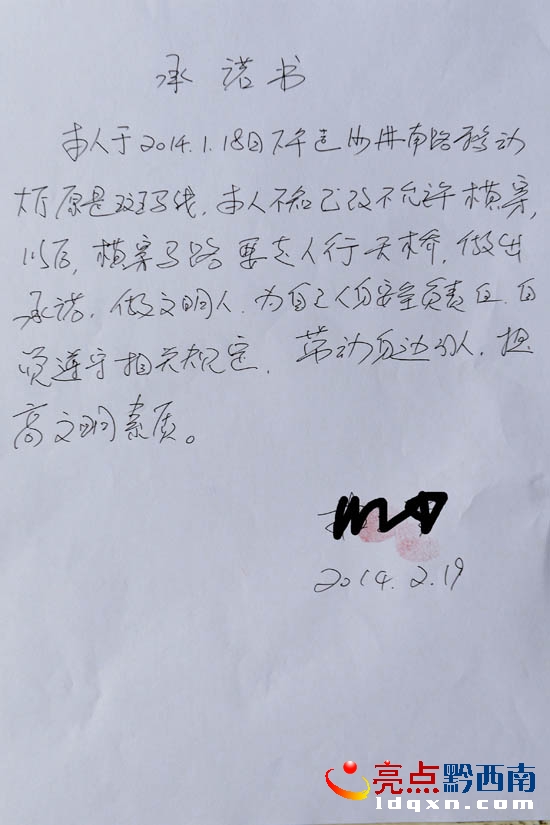 承诺书
本人于2014.1.18日下午过沙井南路移动
大厅原是斑马线,本人不知已改不允许横穿,
以后,横穿马路要走人行天桥,做出
承诺,做文明人,为自己人身安全负责任,自
觉遵守相关规定,带动身边的人,提
高文明素质。
2014.2.19
亮点黔西南
ldqxn.com